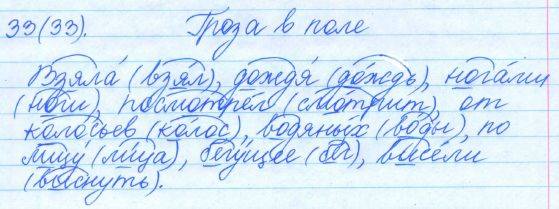 33(33). Гроза в поле
Взяла́ (взя́л), дождя́ (до́ждь), нога́ми
(но́ги), посмотре́л (смо́трит), от
коло́сьев (ко́лос), водяны́х (во́ды), по
лицу́ (ли́ца), бегу́щее (бе́г), висе́ли
(ви́снуть).